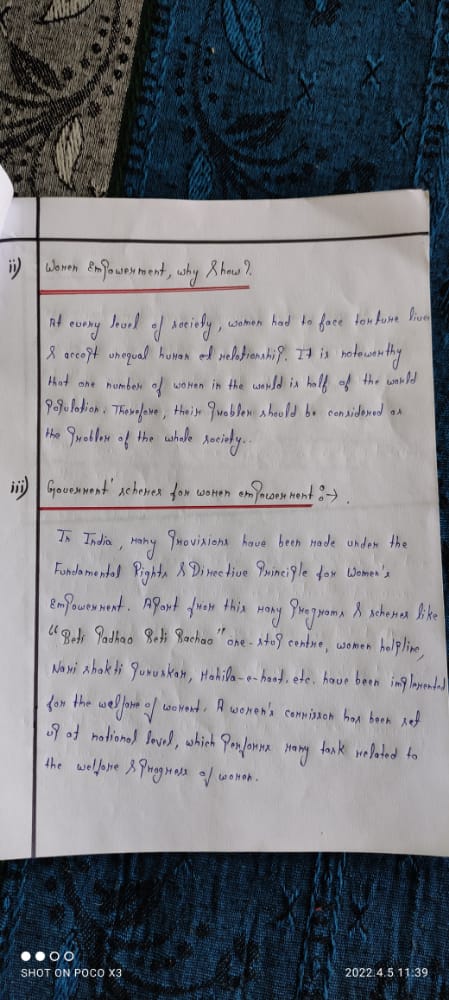 ii) Women Empowerment, why & how?
At every level of society, women had to face torture lives
& accept unequal human ed relationship. It is noteworthy
that one number of women in the world is half of the world
Population. Therefore, their problem should be considered as
the problem of the whole society..
iii) Government' schemes for women empowerment :→ .
In India, many provisions have been made under the
Fundamental Rights & Directive Principle for Women's
Empowerment. Apart from this many programs & schemes like
"Beti Padhao Beti Bachao" one-stop centre, women helpline,
Nari shakti puruskar, Mahila-e-haat. etc. have been implemented
for the welfare of woment. A women's commisson has been set
up at national level, which performs many task related to
the welfare & progress of women.
SHOT ON POCO X3
2022.4.5 11:39